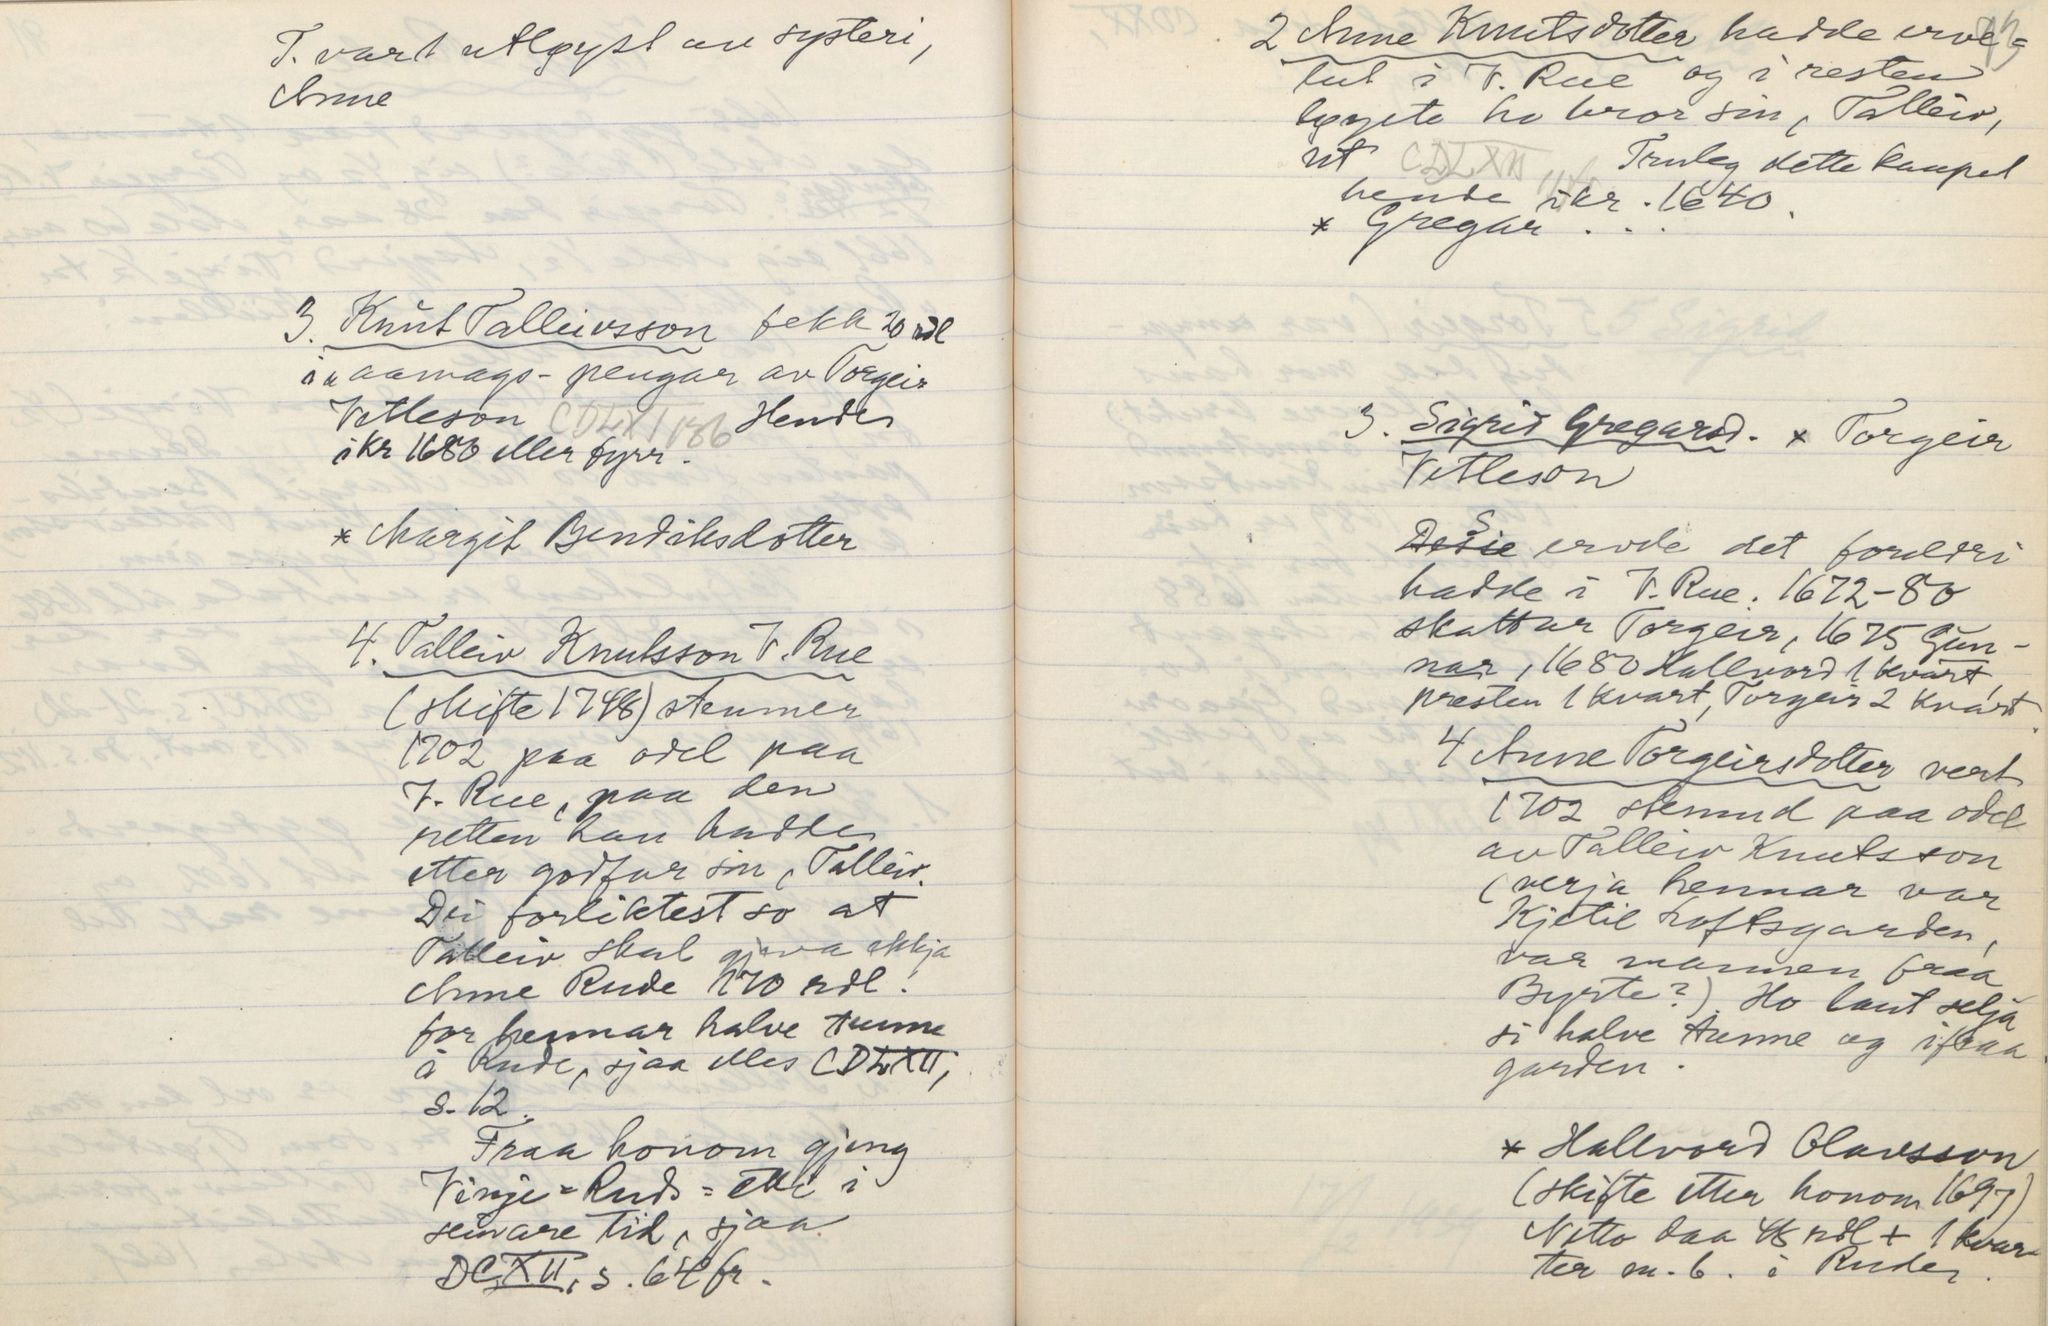 T. vart utløyst av systeri,
Anne
3. Knut Talleivsson fekk 20 rdl
i aamags-pengar av Torgeir
Vetleson CDLXII 186 Hende
ikr 1680 eller fyrr.
* Margit Bendiksdotter
4. Talleiv Knutsson V. Rue
(skifte 1748) stemner
1702 paa odel paa
V. Rue, paa den
retten han hadde
etter godfar sin, Talleiv.
Dei forliktest so at
Talleiv skal gjeva ekkja
Anne Rude 170 rdl.
for hennar halve tunne
i Rude, sjaa elles CDLXII,
s. 12.
Fraa honom gjeng
Vinje-Ruds-ætti i
seinare tid, sjaa
DCXII, s. 64 fr.
2 Anne Knutsdotter hadde erve-
lut i V. Rue og i resten
løyste ho bror sin, Talleiv,
ut CDLXII Truleg dette kaupet
hende ikr. 1640.
* Gregar . . .
3. Sigrid Gregarsd. * Torgeir
Vetleson
S
Desse ervde det foreldri
hadde i V. Rue. 1672-80
skattar Torgeir, 1675 Gun-
nar, 1680 Hallvord 1 kvart,
presten 1 kvart, Torgeir 2 kvart.
4 Anne Torgeirsdotter vert
1702 stemnd paa odel
av Talleiv Knutsson
(verja hennar var
Kjetil Loftsgarden,
var mannen fraa
Byrte?). Ho laut selja
si halve tunne og ifraa
garden.
* Hallvord Olavsson
(skifte etter honom 1697)
Netto daa 48 rdl + 1 kvar-
ter m. b. i Rude.